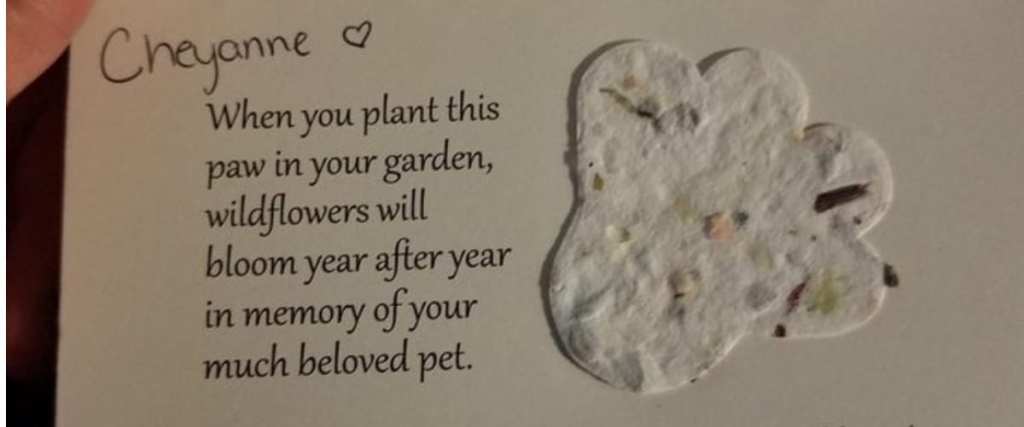 Cheyanne ♡
When you plant this
paw in your garden,
wildflowers will
bloom year after year
in memory of your
much beloved pet.